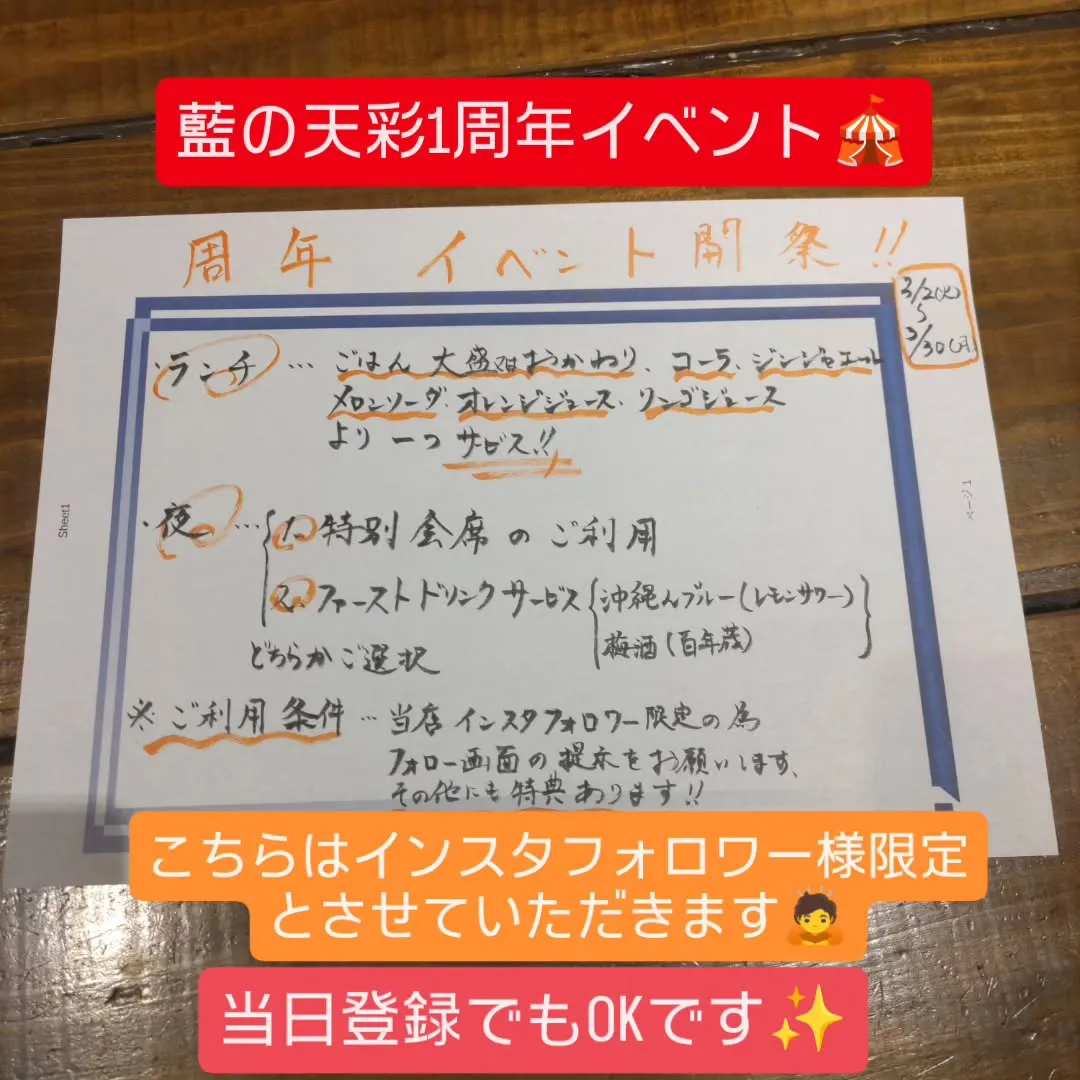 藍の天彩1周年イベント🎪
周年 イベント開祭!!
3/2(火)
〜
3/30(月)
・ランチ … ごはん 大盛又はおかわり、コーラ、ジンジャエール
メロンソーダ、オレンジジュース、リンゴジュース
より 一つ サービス!!
・夜 … 1. 特別会席のご利用
2. ファーストドリンクサービス 沖縄んブルー(レモンサワー)
梅酒(百年蔵)
どちらかご選択
※ご利用条件 … 当店インスタフォロワー限定の為
フォロー画面の提示をお願いします、
その他にも特典あります!!
Sheet1
ページ 1
こちらはインスタフォロワー様限定
とさせていただきます🙇
当日登録でもOKです✨